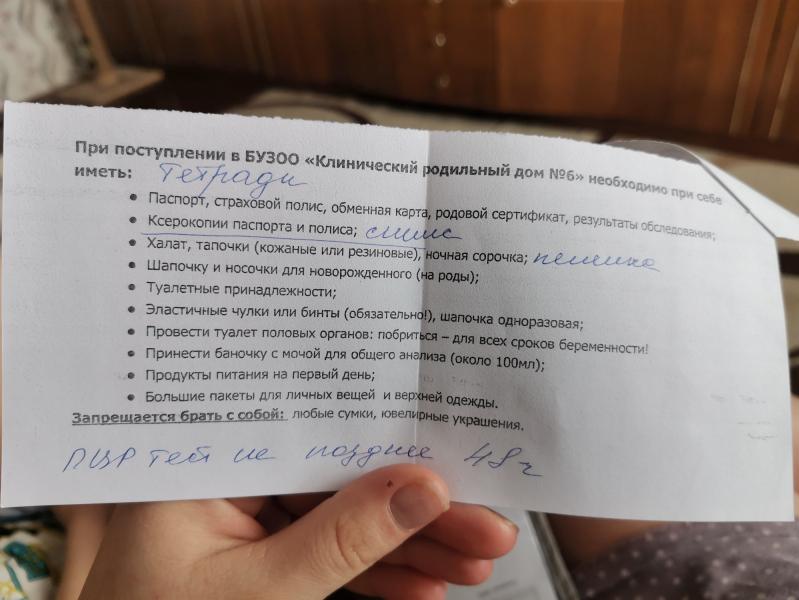 При поступлении в БУЗОО «Клинический родильный дом №6» необходимо при себе
иметь: Тетради
• Паспорт, страховой полис, обменная карта, родовой сертификат, результаты обследования;
• Ксерокопии паспорта и полиса; снилс
• Халат, тапочки (кожаные или резиновые), ночная сорочка; пеленка
• Шапочку и носочки для новорожденного (на роды);
• Туалетные принадлежности;
• Эластичные чулки или бинты (обязательно!), шапочка одноразовая;
• Провести туалет половых органов: побриться – для всех сроков беременности!
• Принести баночку с мочой для общего анализа (около 100мл);
• Продукты питания на первый день;
• Большие пакеты для личных вещей и верхней одежды.
Запрещается брать с собой: любые сумки, ювелирные украшения.
ПЦР тест не позднее 48ч